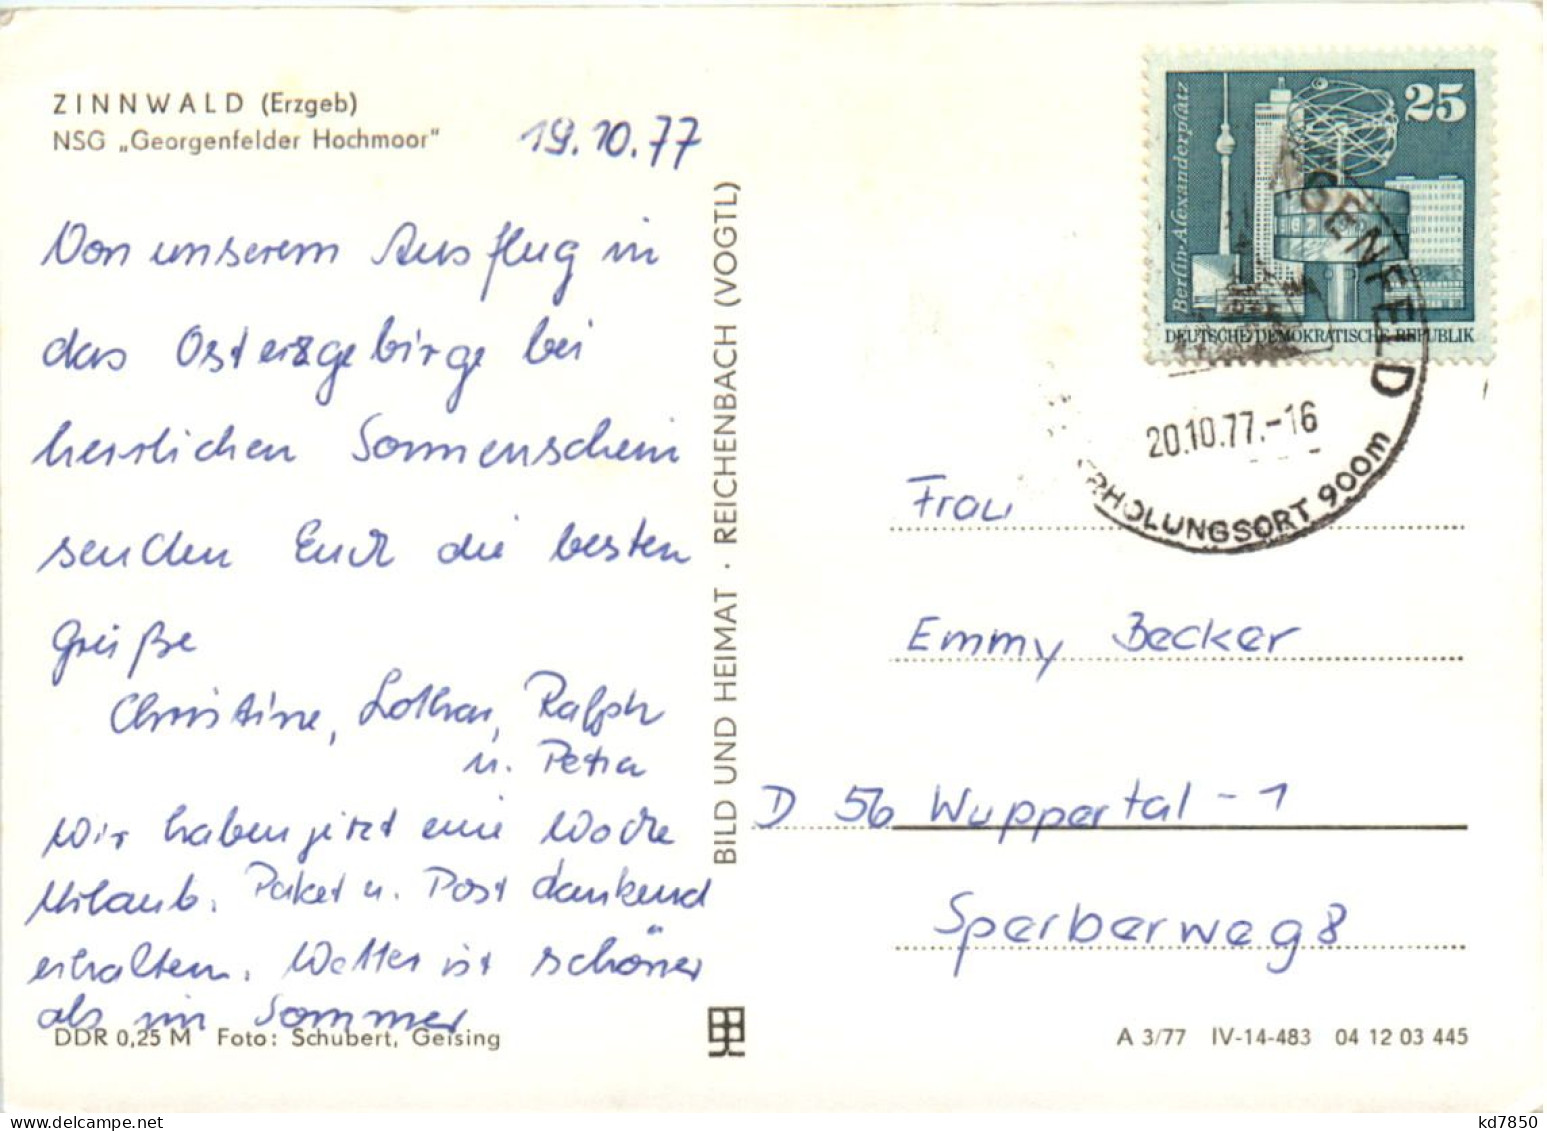 ZINNWALD (Erzgeb)
NSG „Georgenfelder Hochmoor"
19.10.77
Von unserem Ausflug in
das Osterzgebirge bei
herrlichen Sonnenschein
senden Euch die besten
Grüße
Christine, Lothar, Ralph
u. Petra
Wir haben jetzt eine Woche
Urlaub. Paket u. Post dankend
erhalten. Wetter ist schöner
als im Sommer
DDR 0,25 M Foto: Schubert, Geising
BILD UND HEIMAT · REICHENBACH (VOGTL)
25
Berlin-Alexanderplatz
DEUTSCHE DEMOKRATISCHE REPUBLIK
GENFELD
20.10.77.-16
ERHOLUNGSORT 900m
Frau
Emmy Becker
D 56 Wuppertal - 1
Sperberweg 8
A 3/77 IV-14-483 04 12 03 445
kd7850